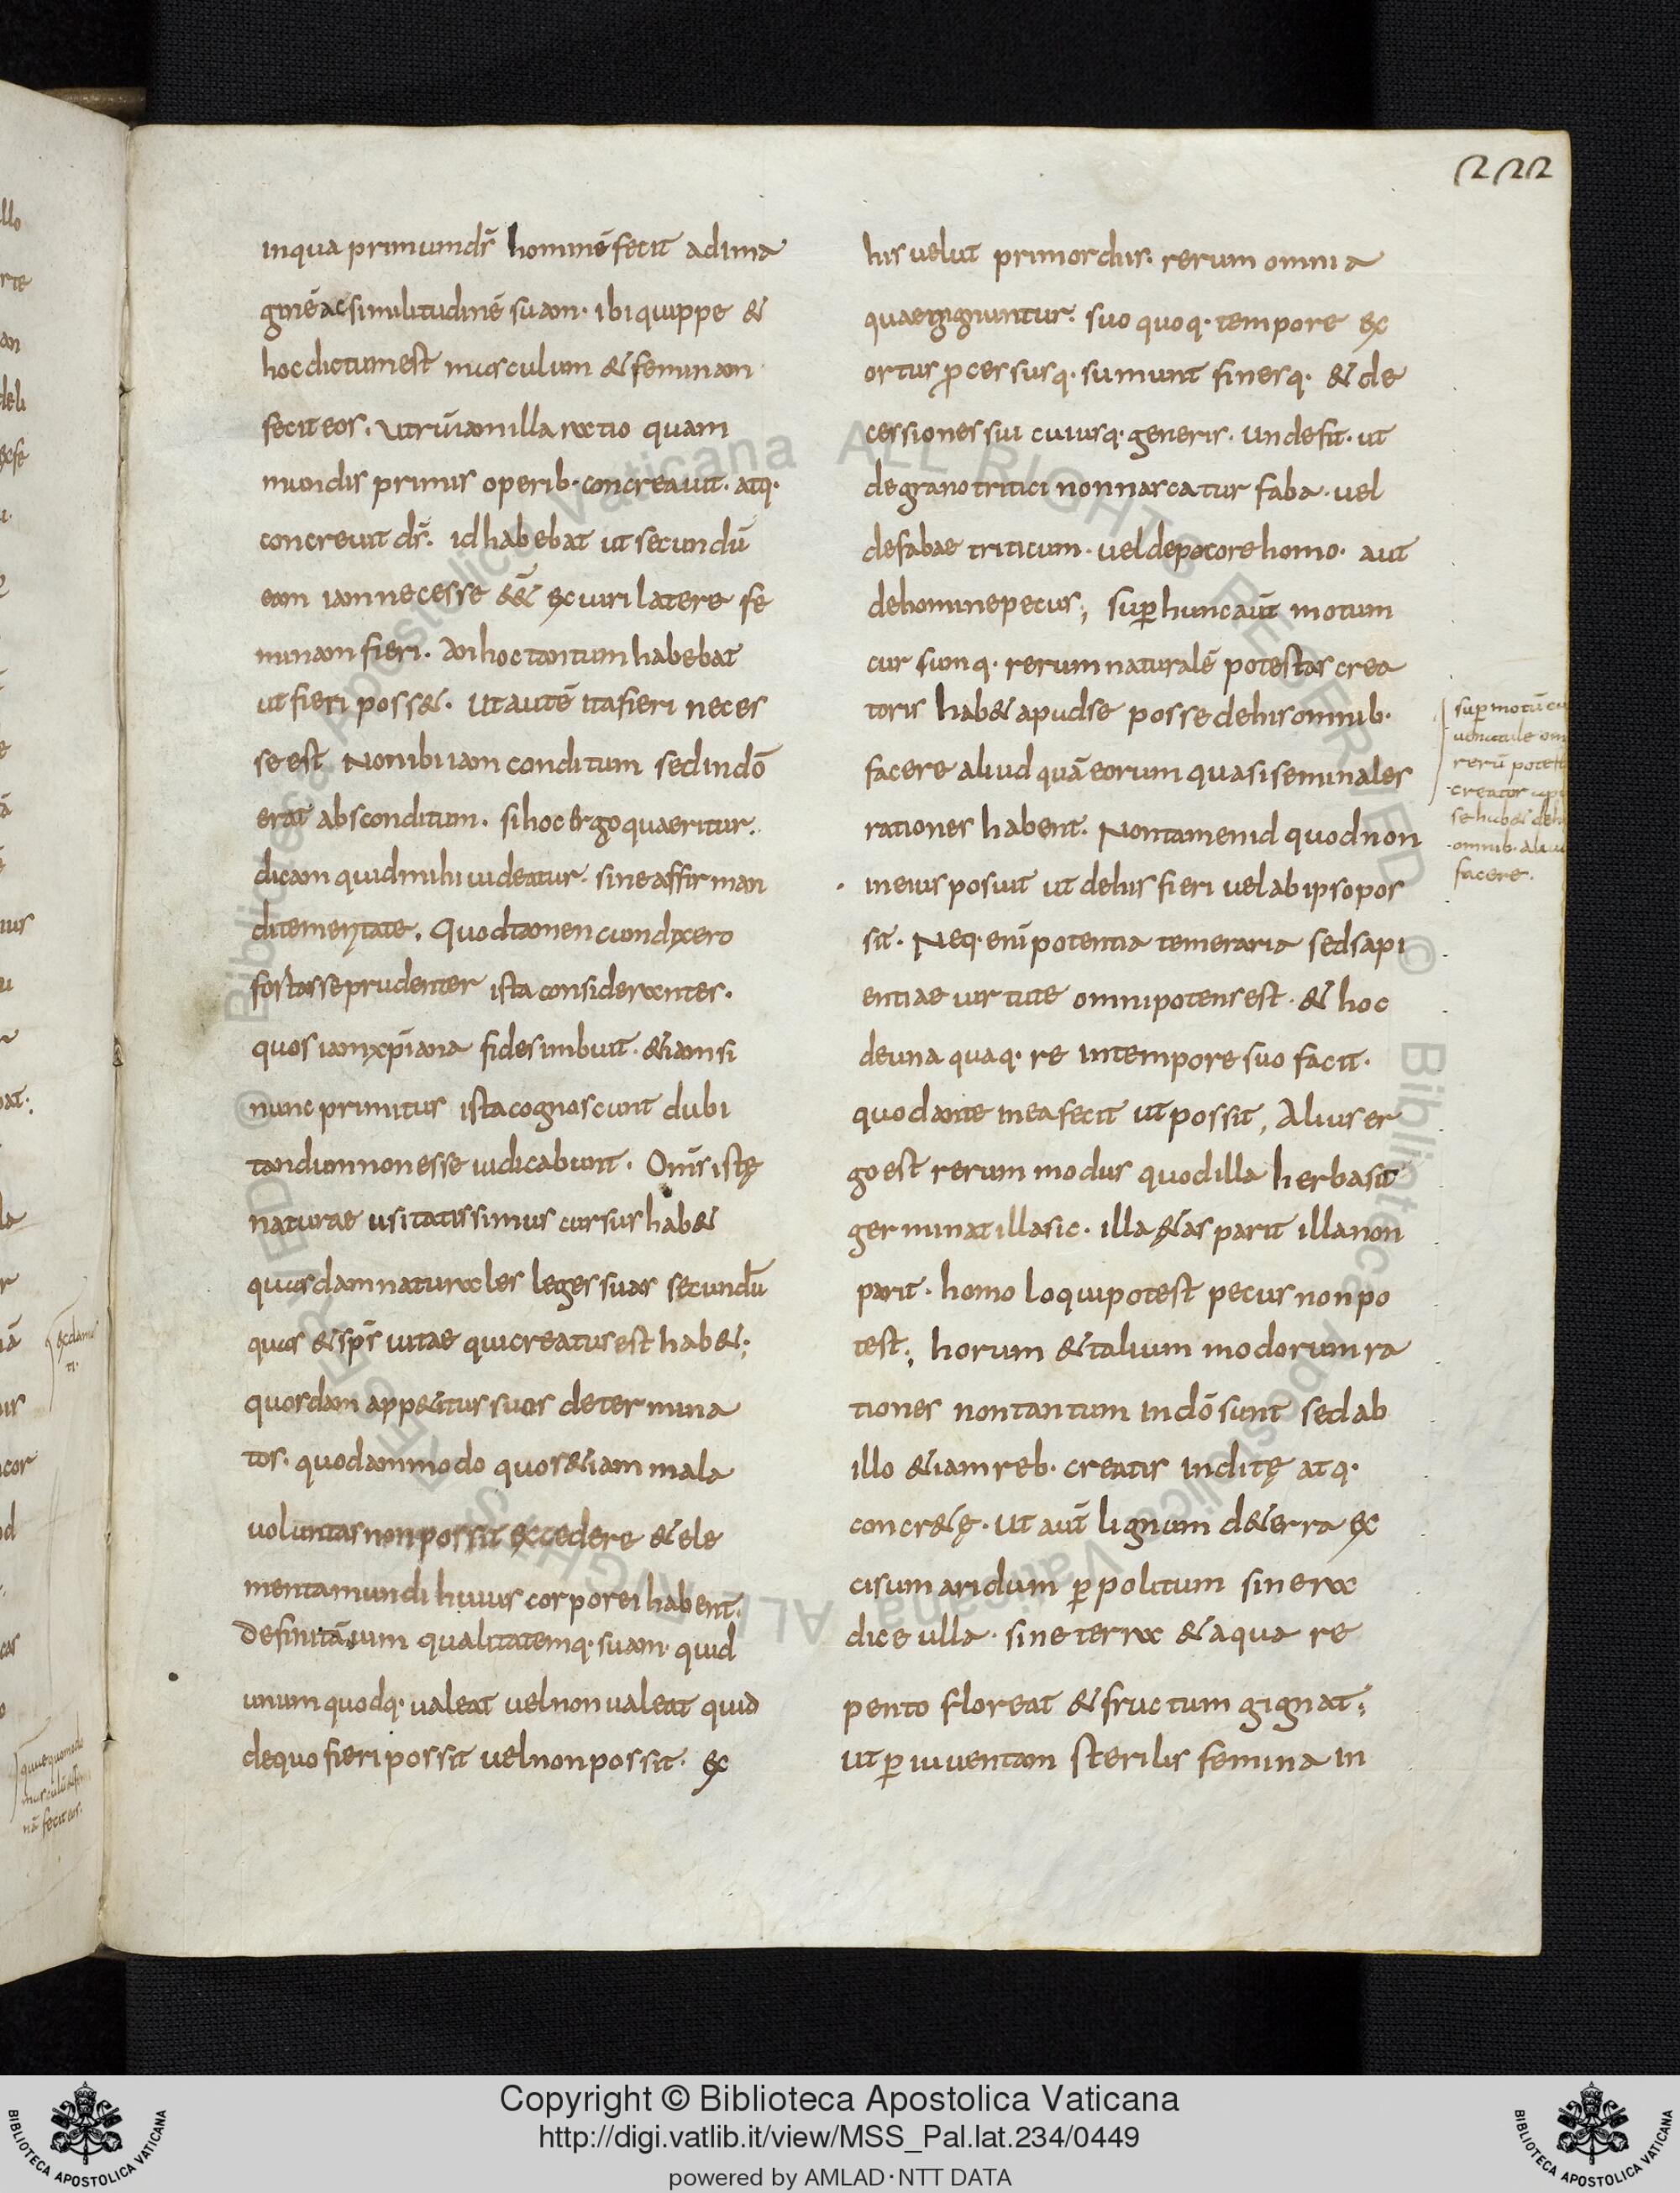 222
inqua primumds̄ hominē fecit adima
ginē ac similitudinē suam· ibi quippe &
hoc dictum est masculum & feminam
fecit eos. Utrū iam illa ratio quam
mundis primis operib· concreauit· atq·
concreuit ds̄. id habebat ut secundū
eam iam necesse ēē& ex uiri latere fe
minam fieri. An hoc tantum habebat
ut fieri poss&. Ut autē ita fieri neces
se est Non ibi iam conditum sed in dō
erat absconditum. si hoc ergo quaeritur.
dicam quid mihi uideatur· sine affirman
di temeritate. Quod tamen cum dixero
fortasse prudenter ista considerantes.
quos iam xp̄iana fides imbuit· &iam si
nunc primitus ista cognoscunt dubi
tandum non esse iudicabunt. Om̄s istę
naturae usitatissimus cursus hab&
quasdam naturales leges suas secundū
quas & sp̄s uitae qui creatus est hab&;
quosdam app&itus suos determina
tos· quodammodo quos &iam mala
uoluntas non possit excedere & ele
menta mundi huius corporei habent.
Definitā uim qualitatemq· suam· quid
unum quodq· ualeat uel non ualeat quid
de quo fieri possit uel non possit· ex
his uelut primordiis· rerum omnia
quae gignuntur. suo quoq· tempore ex
ortus p̄cersusq· sumunt finesq· & de
cessiones sui cuiusq· generis· Unde fit· ut
de grano tritici non nascatur faba· uel
de fabae triticum· uel de pecore homo· aut
de homine pecus; sup̄ hunc aūt motum
cursumq· rerum naturalē potestas crea
toris hab& apud se posse de his omnib·
facere aliud quā eorum quasi seminales
rationes habent. Non tamen id quod non
in eius posuit ut de his fieri uel ab ipso pos
sit· Neq· enī potentia temeraria sed sapi
entiae uirtute omnipotens est· & hoc
de una quaq· re in tempore suo facit·
quod ante in ea fecit ut possit, Alius er
go est rerum modus quod illa herba sit
germinat illa sic· illa &as parit illa non
parit· homo loqui potest pecus non po
test; horum & talium modorum ra
tiones non tantum in dō sunt sed ab
illo &iam reb· creatis inditę atq·
concr&ę· Ut aūt lignum d&erra ex
cisum aridum p̄politum sine ra
dice ulla· sine terra & aqua re
pento floreat & fructum gignat;
ut p̄ iuuentam sterilis femina in
sup̄ motū
rerū
creator
se hab& de
omnib· aliu
facere.
Copyright © Biblioteca Apostolica Vaticana
http://digi.vatlib.it/view/MSS_Pal.lat.234/0449
powered by AMLAD·NTT DATA
BIBLIOTECA APOSTOLICA VATICANA
BIBLIOTECA APOSTOLICA VATICANA